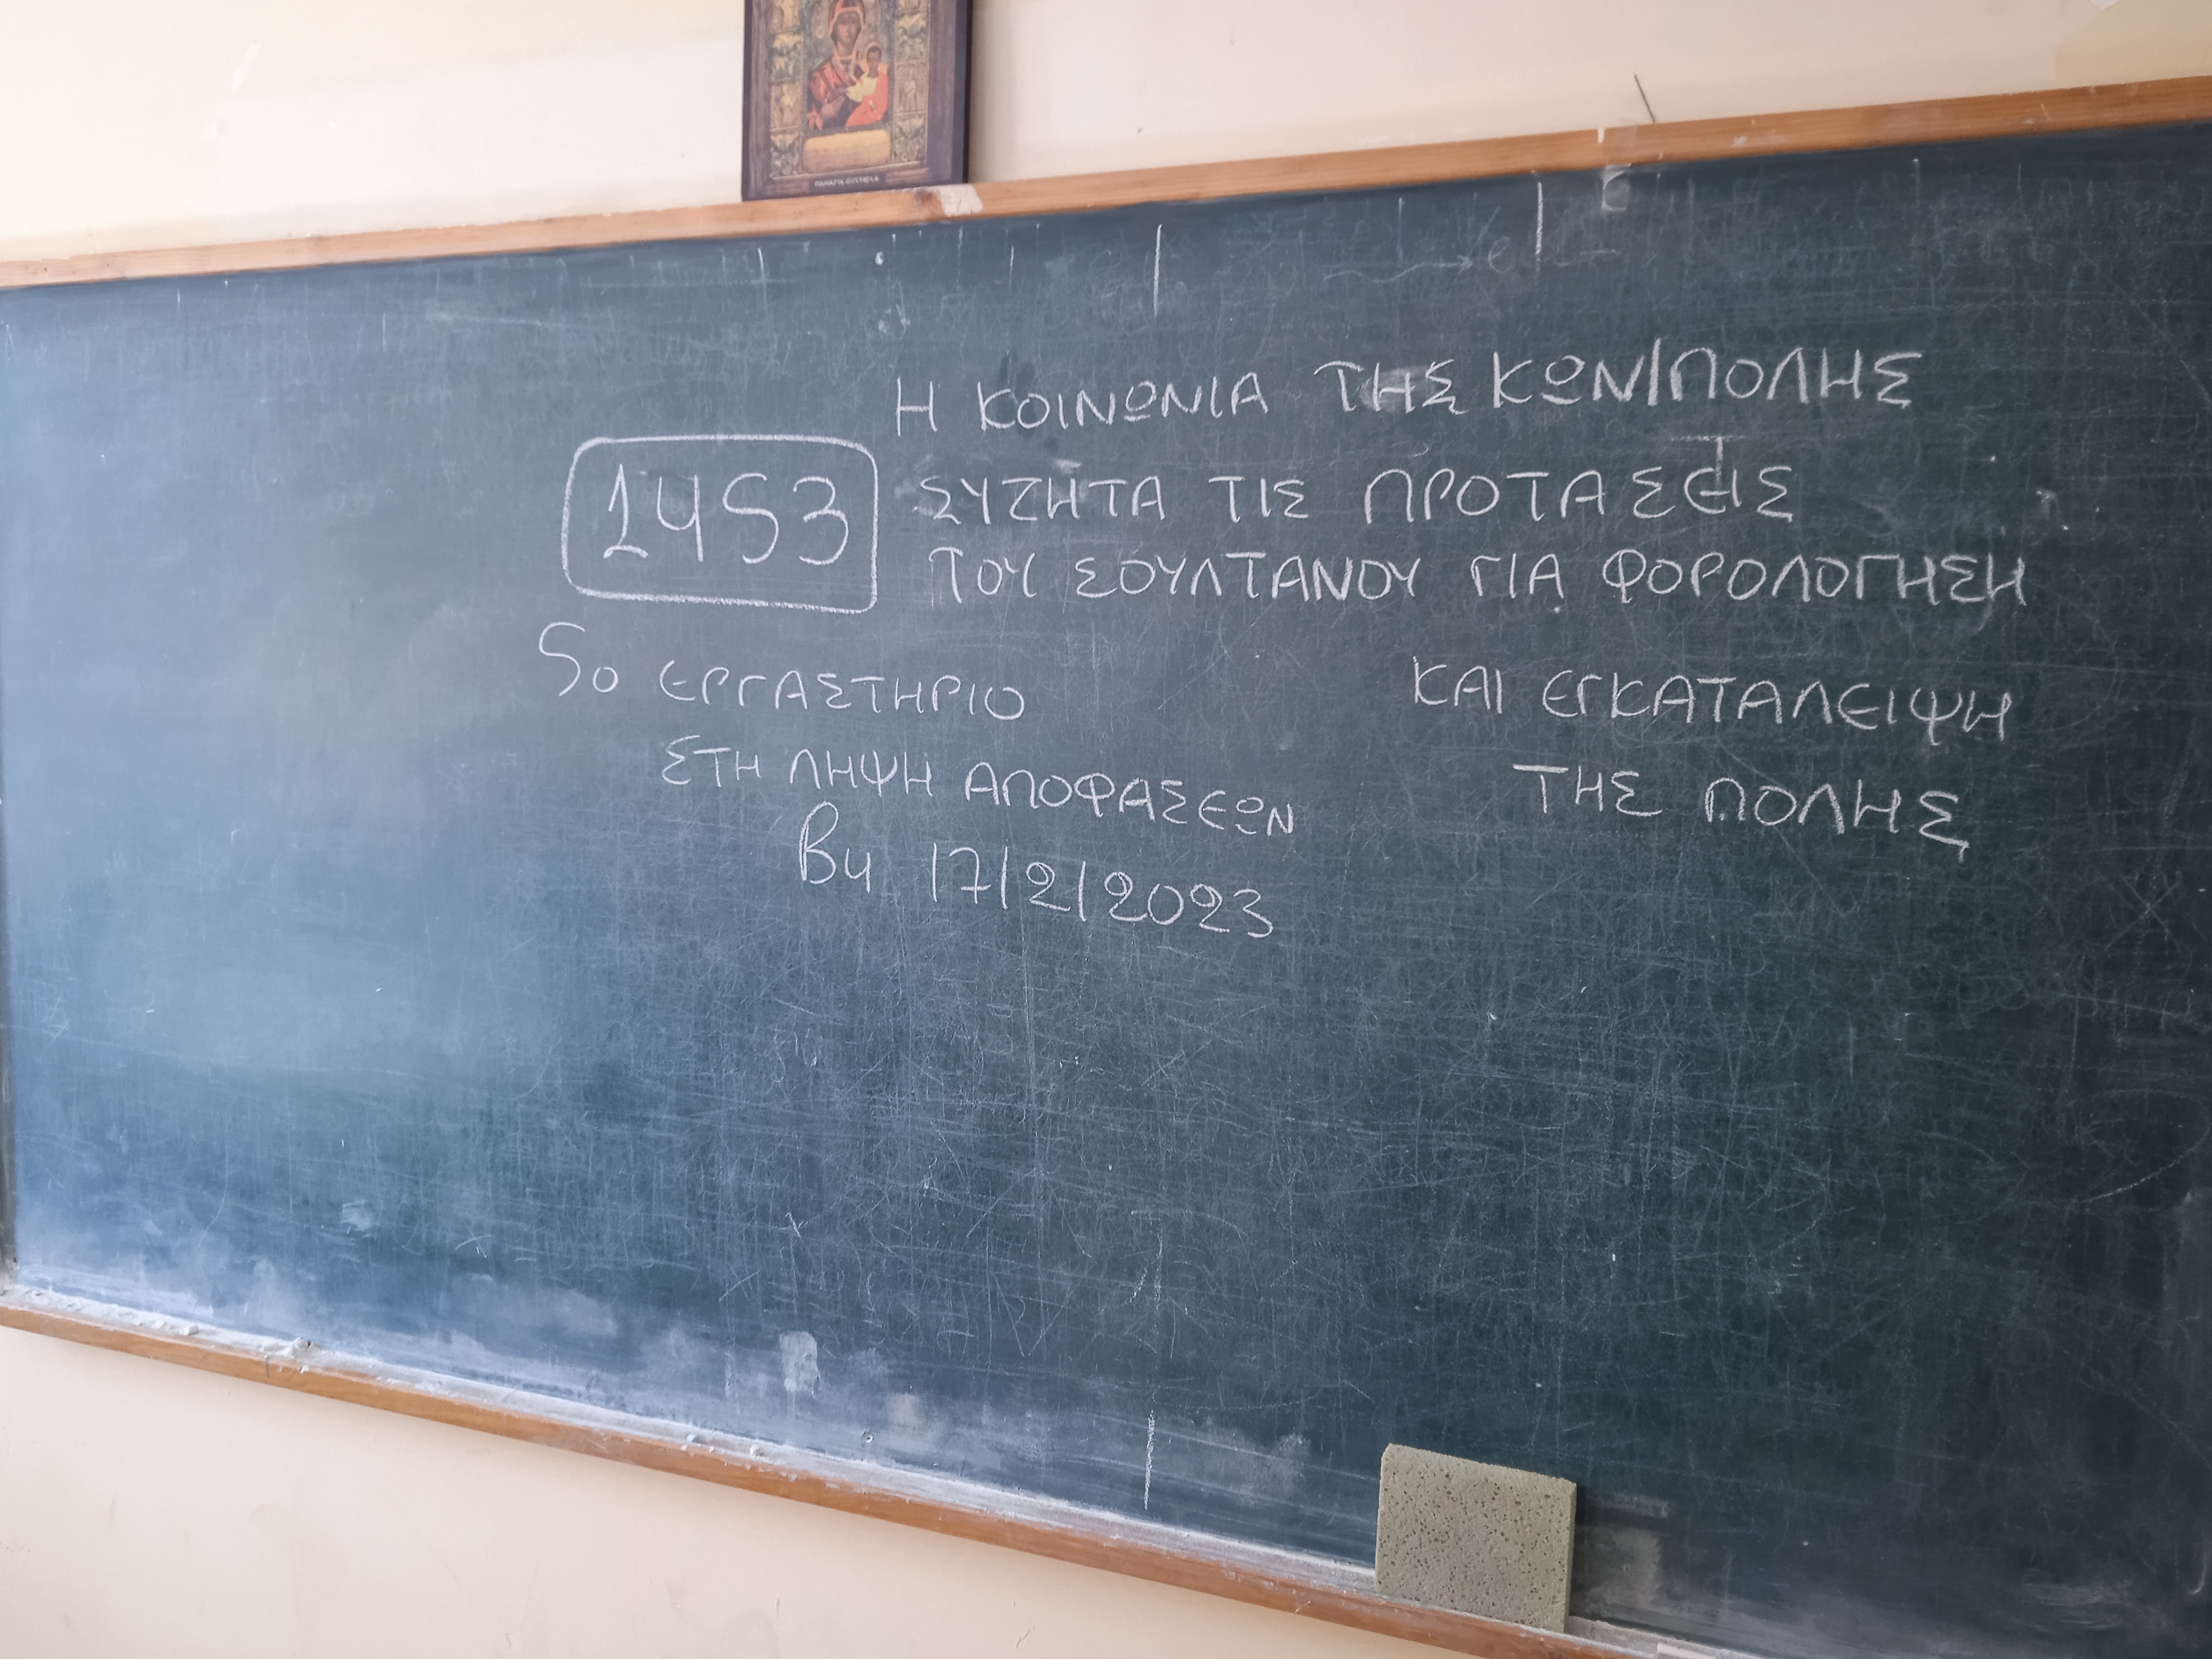 Η ΚΟΙΝΩΝΙΑ ΤΗΣ ΚΩΝ/ΠΟΛΗΣ
1453
ΣΥΖΗΤΑ ΤΙΣ ΠΡΟΤΑΣΕΙΣ
ΤΟΥ ΣΟΥΛΤΑΝΟΥ ΓΙΑ ΦΟΡΟΛΟΓΗΣΗ
ΚΑΙ ΕΓΚΑΤΑΛΕΙΨΗ
ΤΗΣ ΠΟΛΗΣ
5ο ΕΡΓΑΣΤΗΡΙΟ
ΣΤΗ ΛΗΨΗ ΑΠΟΦΑΣΕΩΝ
Β4 17/2/2023